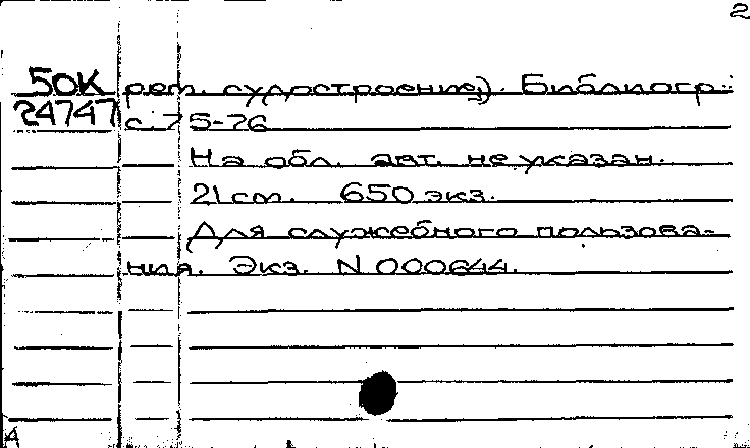 2
50К рет. судостроение). Библиогр.:
24747 с. 75-76
На обл. авт. не указан.
21 cm. 650 экз.
Для служебного пользова-
ния. Экз. N 000644.
А